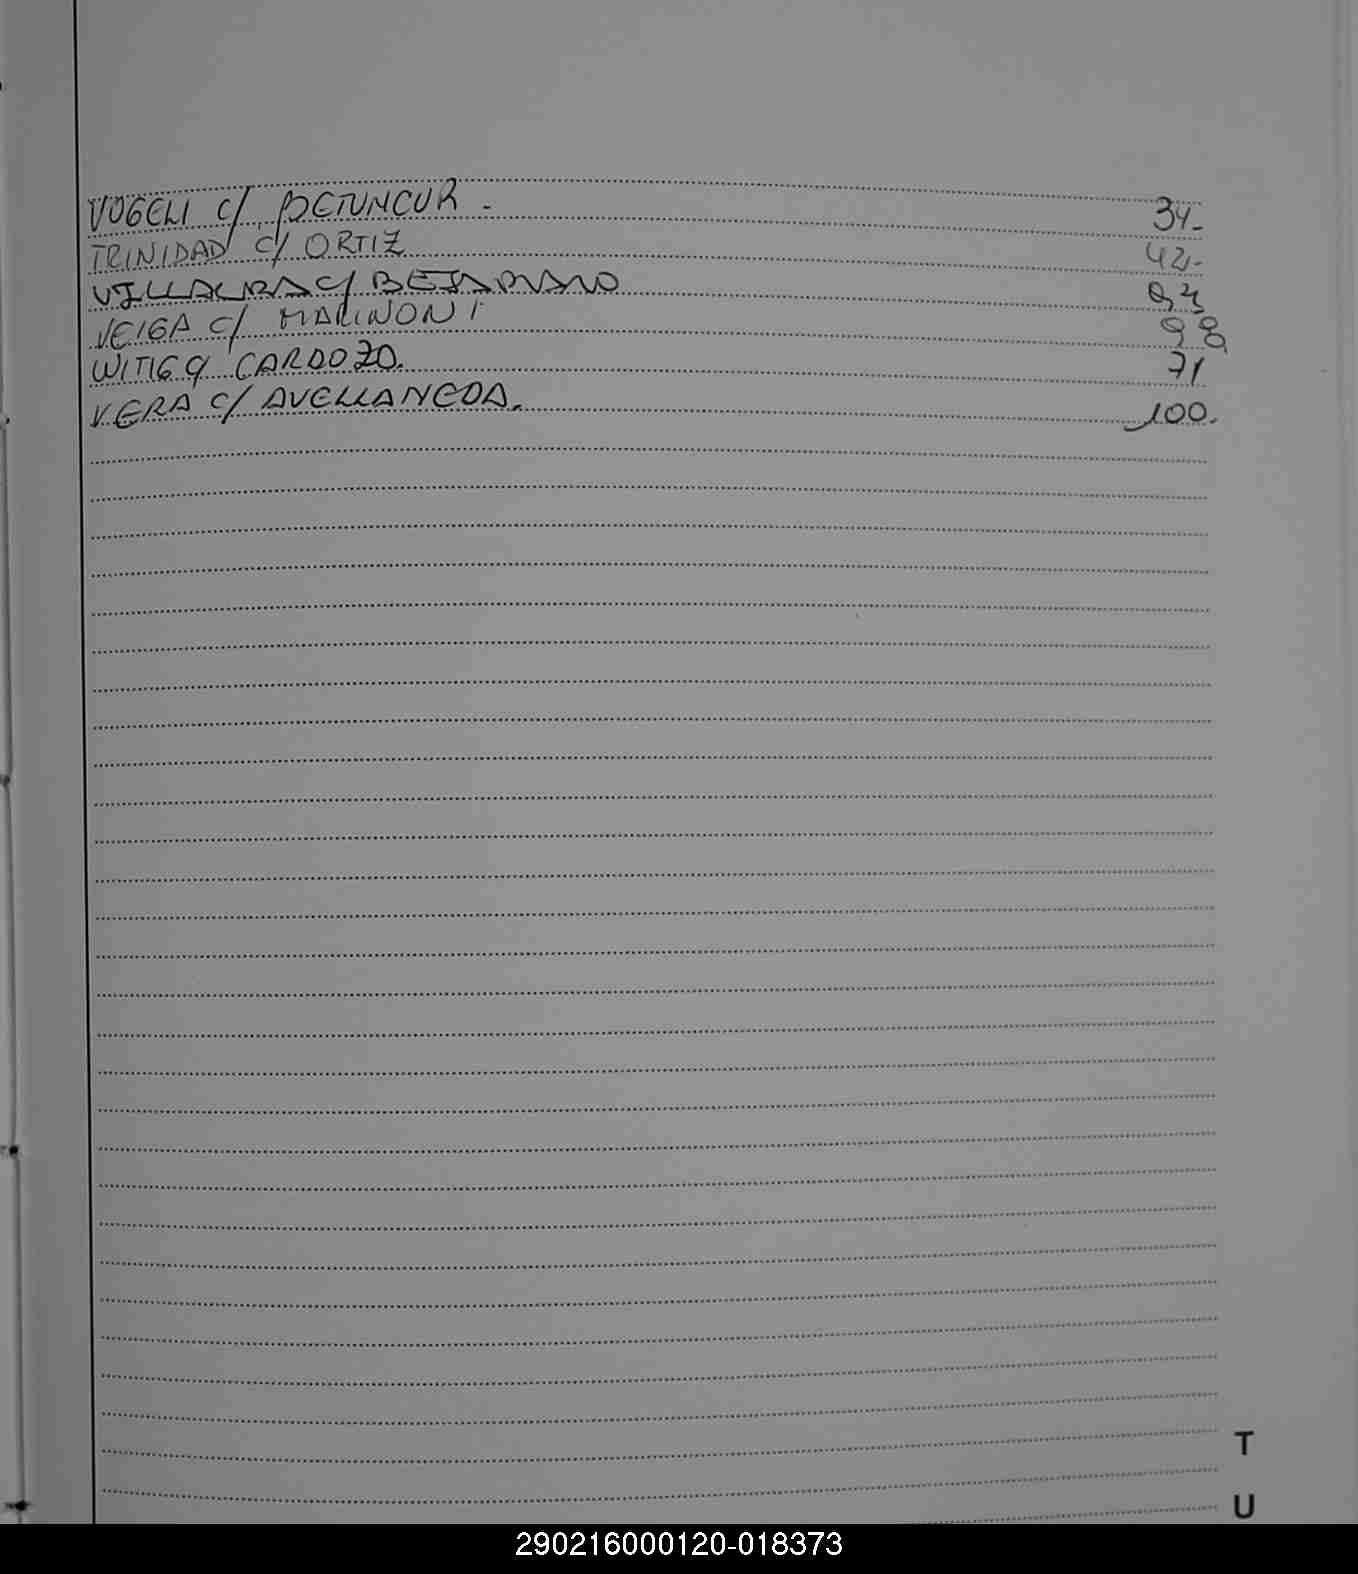 VOGELI c/ BETUNCUR - 34-
TRINIDAD c/ ORTIZ 42-
VILLALBA c/ BEJARANO 93
VEIGA c/ MARINONI 98
WITIG c/ CARDOZO. 71
VERA c/ AVELLANEDA. 100.
T
U
290216000120-018373